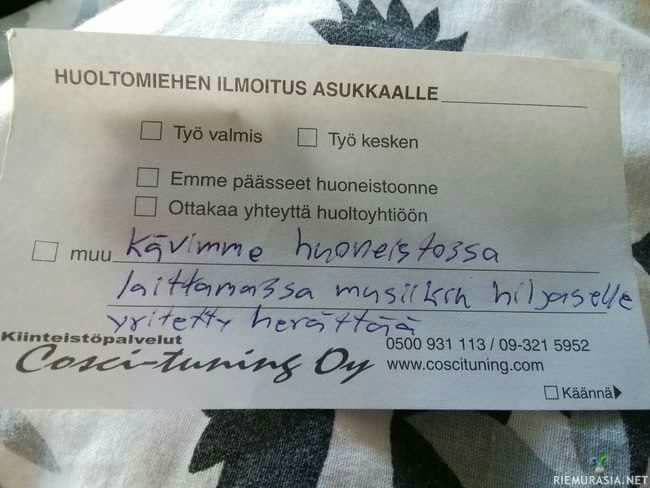 HUOLTOMIEHEN ILMOITUS ASUKKAALLE
Työ valmis Työ kesken
Emme päässeet huoneistoonne
Ottakaa yhteyttä huoltoyhtiöön
muu Kävimme huoneistossa
laittamassa musiikin hiljaselle
yritetty herättää
Kiinteistöpalvelut
Cosci-tuning Oy
0500 931 113 / 09-321 5952
www.coscituning.com
Käännä
RIEMURASIA.NET